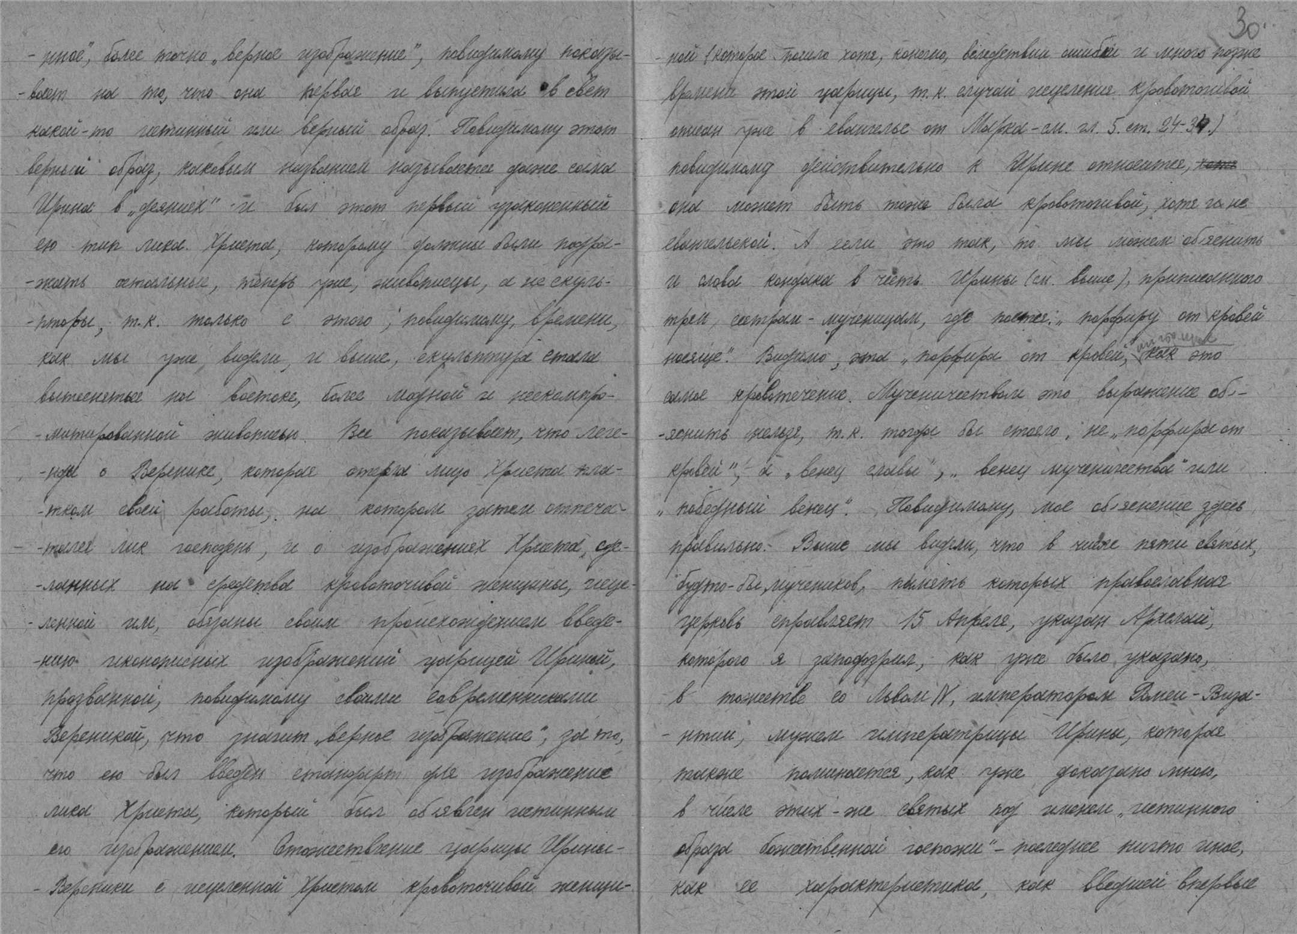 -рное", более точно „верное изображение", повидимому показы-
-вает на то, что она первая и выпустила в свет
какой-то истинный или верный образ. Повидимому этот
верный образ, каковым названием называется даже сама
Ирина в „деяниях" и был этот первый узаконенный
ею тип лика Христа, которому должны были подра-
-жать остальные, теперь уже, живописцы, а не скуль-
-пторы, т.к. только с этого, повидимому, времени,
как мы уже видели, и выше, скульптура стала
вытесняться на востоке, более модной и нескомпро-
-митированной живописью. Все показывает, что леге-
-нда о Веренике, которая отерла лицо Христа пла-
-тком своей работы, на котором затем отпеча-
-тался лик господень, и о изображениях Христа, сде-
-ланных на средства кровоточивой женщины, исце-
-ленной им, обязаны своим происхождением введе-
-нию иконописных изображений царицей Ириной,
прозванной, повидимому своими современниками
Вереникой, что значит „верное изображение", за то,
что ею был введен стандарт для изображения
лика Христа, который был объявлен истинным
его изображением. Отожествление царицы Ирины-
-Вереники с исцеленной Христом кровоточивой женщи-
30.
-ной (которая жила хотя, конечно, вследствии ошибки и много позже
времени этой царицы, т.к. случай исцеления кровоточивой
описан уже в евангелье от Марка-см. гл. 5. ст. 24-34.)
повидимому действительно к Ирине относится,
она может быть тоже была кровоточивой, хотя и не
евангельской. А если это так, то мы можем объяснить
и слова кондака в честь Ирины (см. выше), приписанного
трем сестрам-мученицам, где поется: „порфиру от кровей
носяще". Видимо, эта „порфира от кровей," как это
самое кровотечение. Мученичеством это выражение объ-
-яснить нельзя, т.к. тогда бы стояло, не „порфира от
кровей", а „венец славы", „венец мученичества" или
„победный венец". Повидимому, мое объяснение здесь
правильно. Выше мы видели, что в числе пяти святых,
будто-бы мучеников, память которых православная
церковь справляет 15 Апреля, указан Архелай,
которого я заподозрил, как уже было указано,
в тожестве со Львом IV, императором Ромеи-Виза-
-нтии, мужем императрицы Ирины, которая
также поминается, как уже доказано мною,
в числе этих-же святых под именем „истинного
образа божественной госпожи" - последнее ничто иное,
как ее характеристика, как введшей впервые